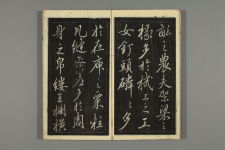 畝之農夫架梁之
椽多於機上之工
女釘頭磷磷多
於在庾之粟粒
瓦縫參差多於周
身之帛縷直欄橫